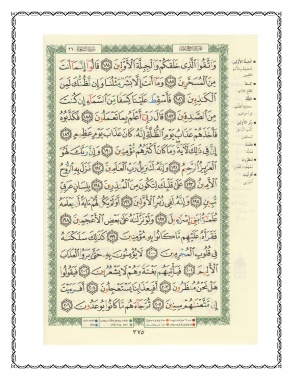 وَٱتَّقُوا۟ ٱلَّذِى خَلَقَكُمْ وَٱلْجِبِلَّةَ ٱلْأَوَّلِينَ ١٨٤ قَالُوٓا۟ إِنَّمَآ أَنتَ
مِنَ ٱلْمُسَحَّرِينَ ١٨٥ وَمَآ أَنتَ إِلَّا بَشَرٌ مِّثْلُنَا وَإِن نَّظُنُّكَ لَمِنَ
ٱلْكَـٰذِبِينَ ١٨٦ فَأَسْقِطْ عَلَيْنَا كِسَفًا مِّنَ ٱلسَّمَآءِ إِن كُنتَ
مِنَ ٱلصَّـٰدِقِينَ ١٨٧ قَالَ رَبِّىٓ أَعْلَمُ بِمَا تَعْمَلُونَ ١٨٨ فَكَذَّبُوهُ
فَأَخَذَهُمْ عَذَابُ يَوْمِ ٱلظُّلَّةِ إِنَّهُۥ كَانَ عَذَابَ يَوْمٍ عَظِيمٍ ١٨٩
إِنَّ فِى ذَٰلِكَ لَـَٔايَةً وَمَا كَانَ أَكْثَرُهُم مُّؤْمِنِينَ ١٩٠ وَإِنَّ رَبَّكَ لَهُوَ
ٱلْعَزِيزُ ٱلرَّحِيمُ ١٩١ وَإِنَّهُۥ لَتَنزِيلُ رَبِّ ٱلْعَـٰلَمِينَ ١٩٢ نَزَلَ بِهِ ٱلرُّوحُ
ٱلْأَمِينُ ١٩٣ عَلَىٰ قَلْبِكَ لِتَكُونَ مِنَ ٱلْمُنذِرِينَ ١٩٤ بِلِسَانٍ عَرَبِىٍّ
مُّبِينٍ ١٩٥ وَإِنَّهُۥ لَفِى زُبُرِ ٱلْأَوَّلِينَ ١٩٦ أَوَلَمْ يَكُن لَّهُمْ ءَايَةً أَن يَعْلَمَهُۥ
عُلَمَـٰٓؤُا۟ بَنِىٓ إِسْرَٰٓءِيلَ ١٩٧ وَلَوْ نَزَّلْنَـٰهُ عَلَىٰ بَعْضِ ٱلْأَعْجَمِينَ ١٩٨
فَقَرَأَهُۥ عَلَيْهِم مَّا كَانُوا۟ بِهِۦ مُؤْمِنِينَ ١٩٩ كَذَٰلِكَ سَلَكْنَـٰهُ
فِى قُلُوبِ ٱلْمُجْرِمِينَ ٢٠٠ لَا يُؤْمِنُونَ بِهِۦ حَتَّىٰ يَرَوُا۟ ٱلْعَذَابَ
ٱلْأَلِيمَ ٢٠١ فَيَأْتِيَهُم بَغْتَةً وَهُمْ لَا يَشْعُرُونَ ٢٠٢ فَيَقُولُوا۟
هَلْ نَحْنُ مُنظَرُونَ ٢٠٣ أَفَبِعَذَابِنَا يَسْتَعْجِلُونَ ٢٠٤ أَفَرَءَيْتَ
إِن مَّتَّعْنَـٰهُمْ سِنِينَ ٢٠٥ ثُمَّ جَآءَهُم مَّا كَانُوا۟ يُوعَدُونَ ٢٠٦
٣٧٥